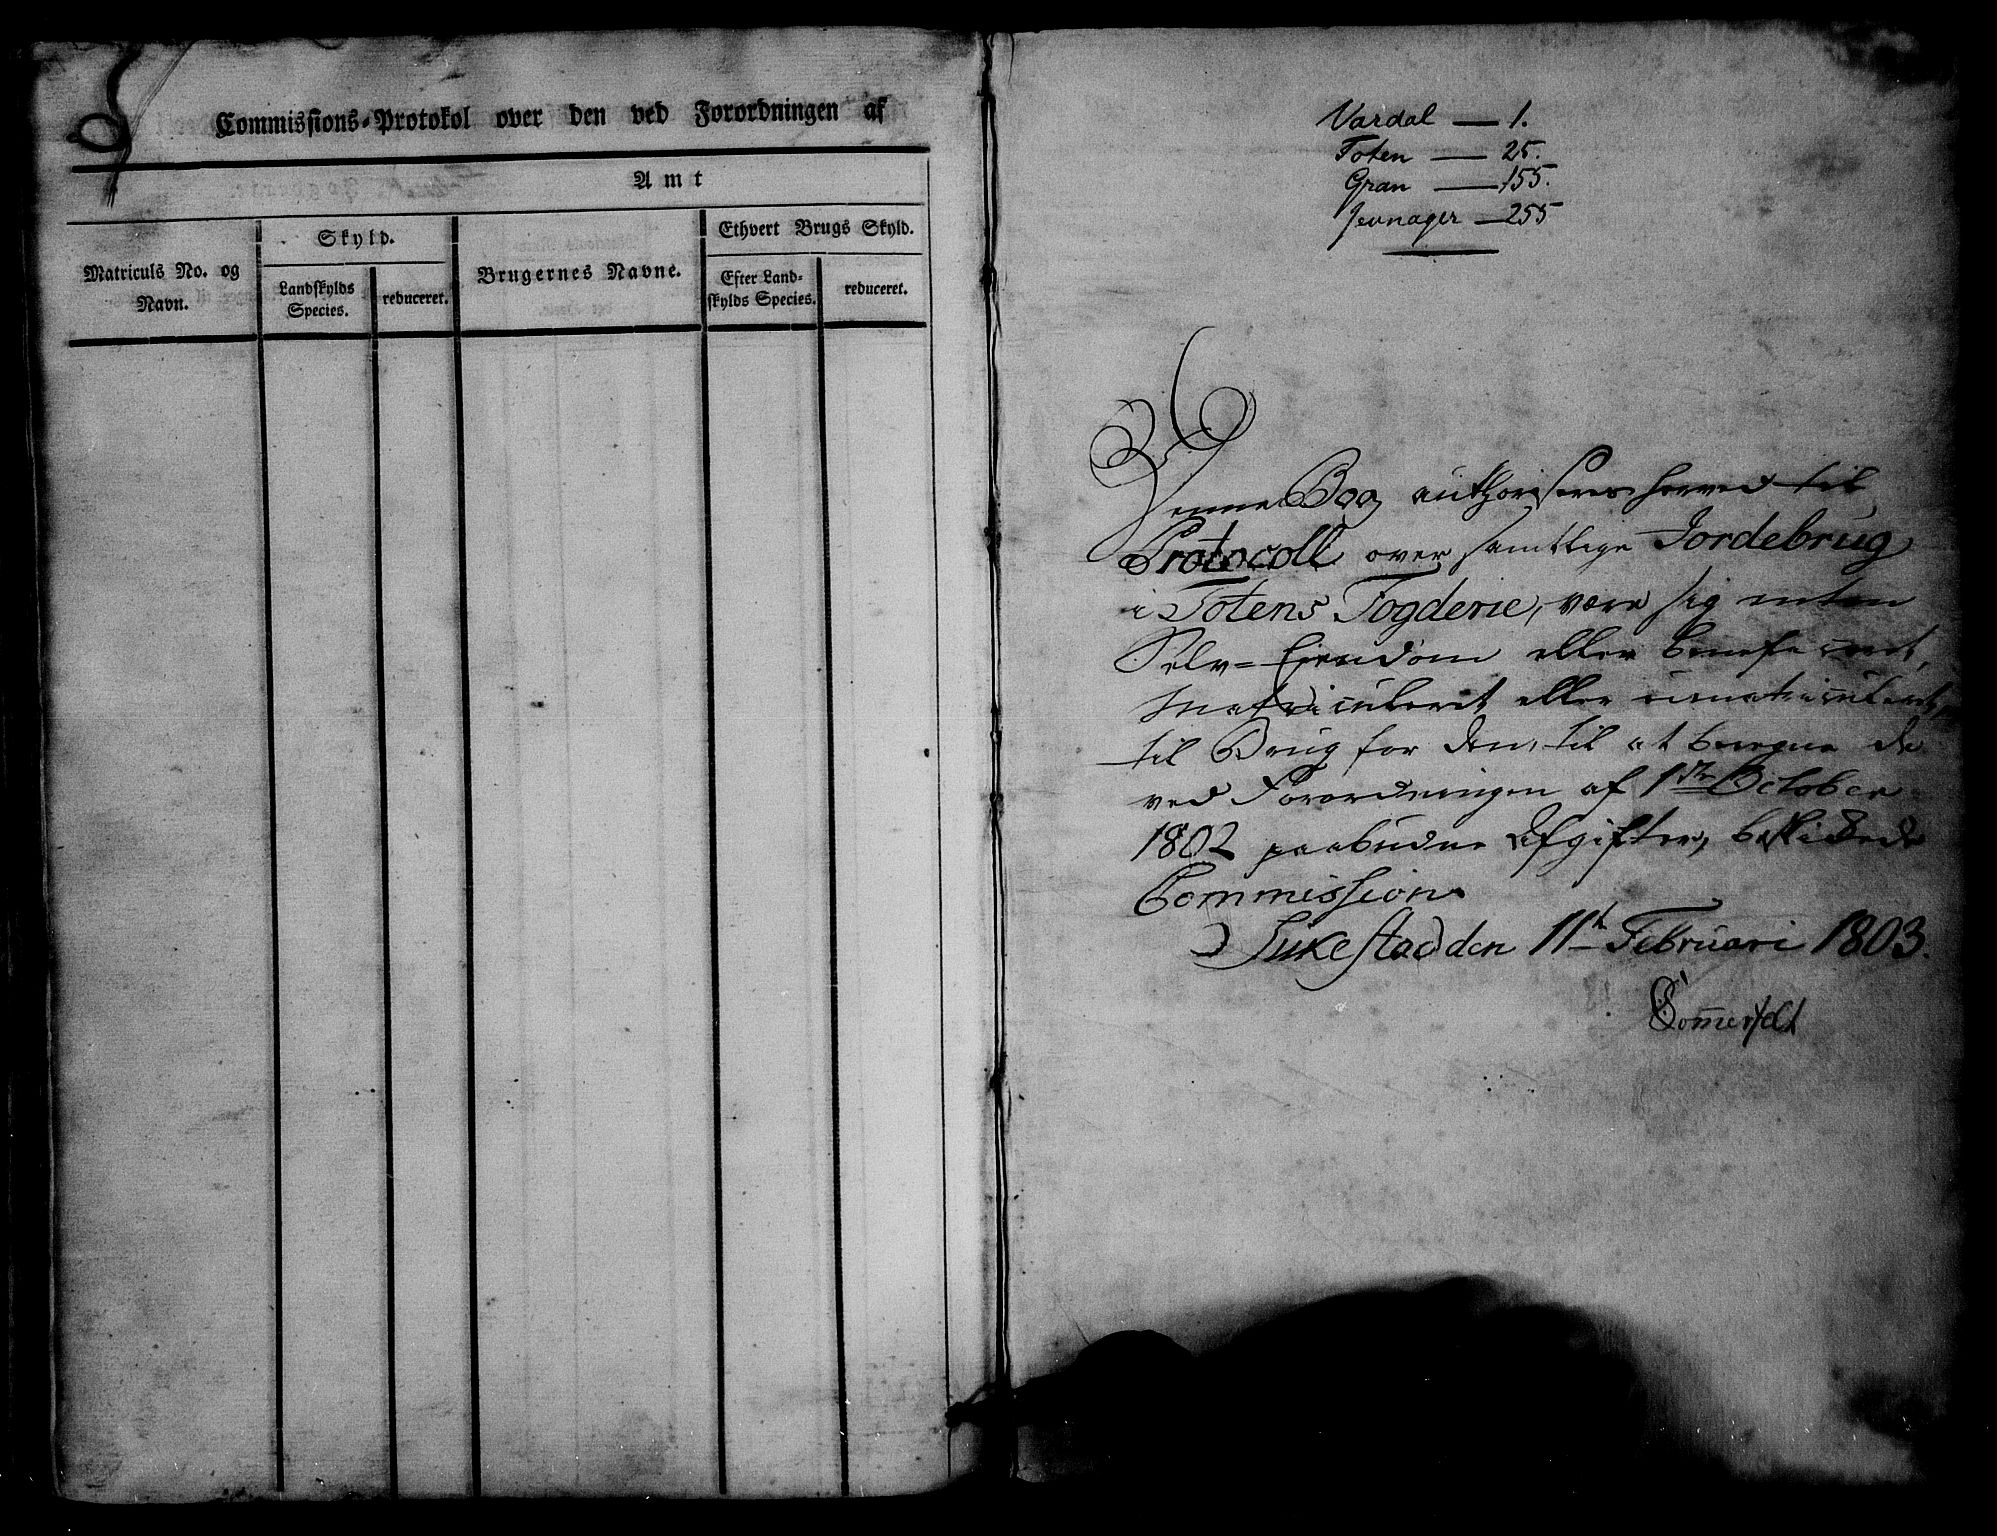 Commissions-Protokol over den ved Forordningen af
Amt
Matriculs No. og Navn.
Skyld.
Landskylds Species.
reduceret.
Brugernes Navne.
Ethvert Brugs Skyld.
Efter Land-
skylds Species.
reduceret.
Vardal — 1.
Toten — 25.
Gran — 155.
Jevnager — 255
Denne Bog authoriseres herved til
Protocoll over samtlige Jordebrug
i Totens Fogderie, være sig enten
Selv-Eiendom eller beneficeret,
Matriculeret eller umatriculeret,
til Brug for den, til at beregne de
ved Forordningen af 1ste October
1802 paabudne Afgifter, beskikkede
Commission.
den 11te Februari 1803.
Sommerfeldt